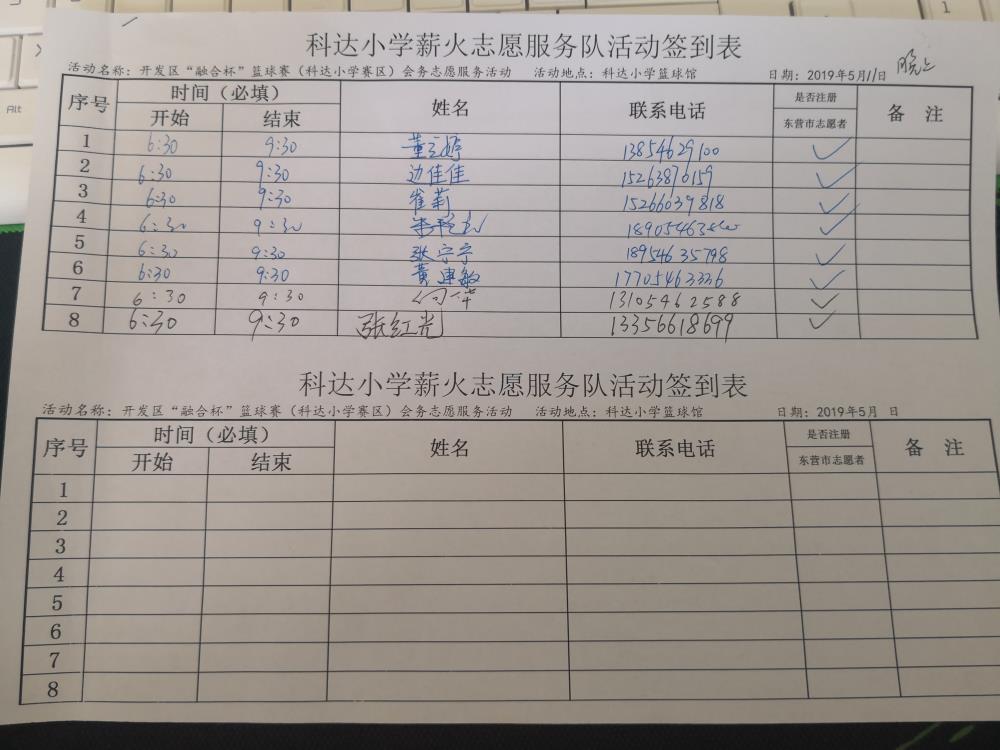 科达小学薪火志愿服务队活动签到表
活动名称：开发区“融合杯”篮球赛（科达小学赛区）会务志愿服务活动 活动地点：科达小学篮球馆 日期：2019年5月11日 晚上
序号 时间（必填） 姓名 联系电话 是否注册 备 注
开始 结束 东营市志愿者
1 6:30 9:30 董立婷 13854629100 ✓
2 6:30 9:30 边佳佳 15263876159 ✓
3 6:30 9:30 崔莉 15266039818 ✓
4 6:30 9:30 ✓
5 6:30 9:30 张宁宁 18954635798 ✓
6 6:30 9:30 黄连敏 17705463336 ✓
7 6:30 9:30 13105462588 ✓
8 6:30 9:30 张红光 13356618699 ✓
科达小学薪火志愿服务队活动签到表
活动名称：开发区“融合杯”篮球赛（科达小学赛区）会务志愿服务活动 活动地点：科达小学篮球馆 日期：2019年5月 日
序号 时间（必填） 姓名 联系电话 是否注册 备 注
开始 结束 东营市志愿者
1
2
3
4
5
6
7
8
Alt
1